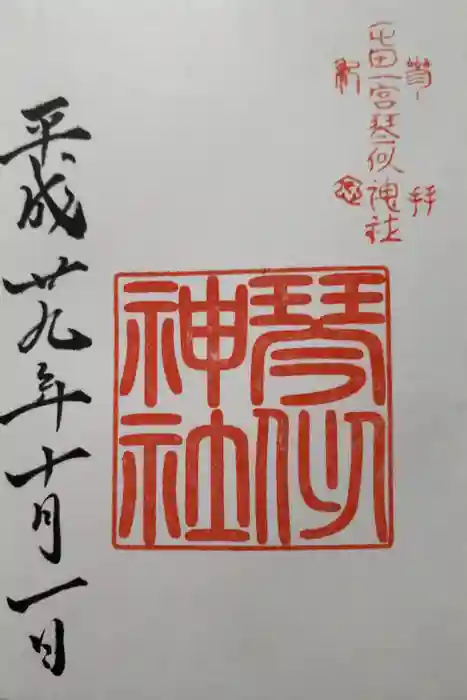 參拝
屯田一宮琴似神社
記念
琴似
神社
平成廿九年十月一日